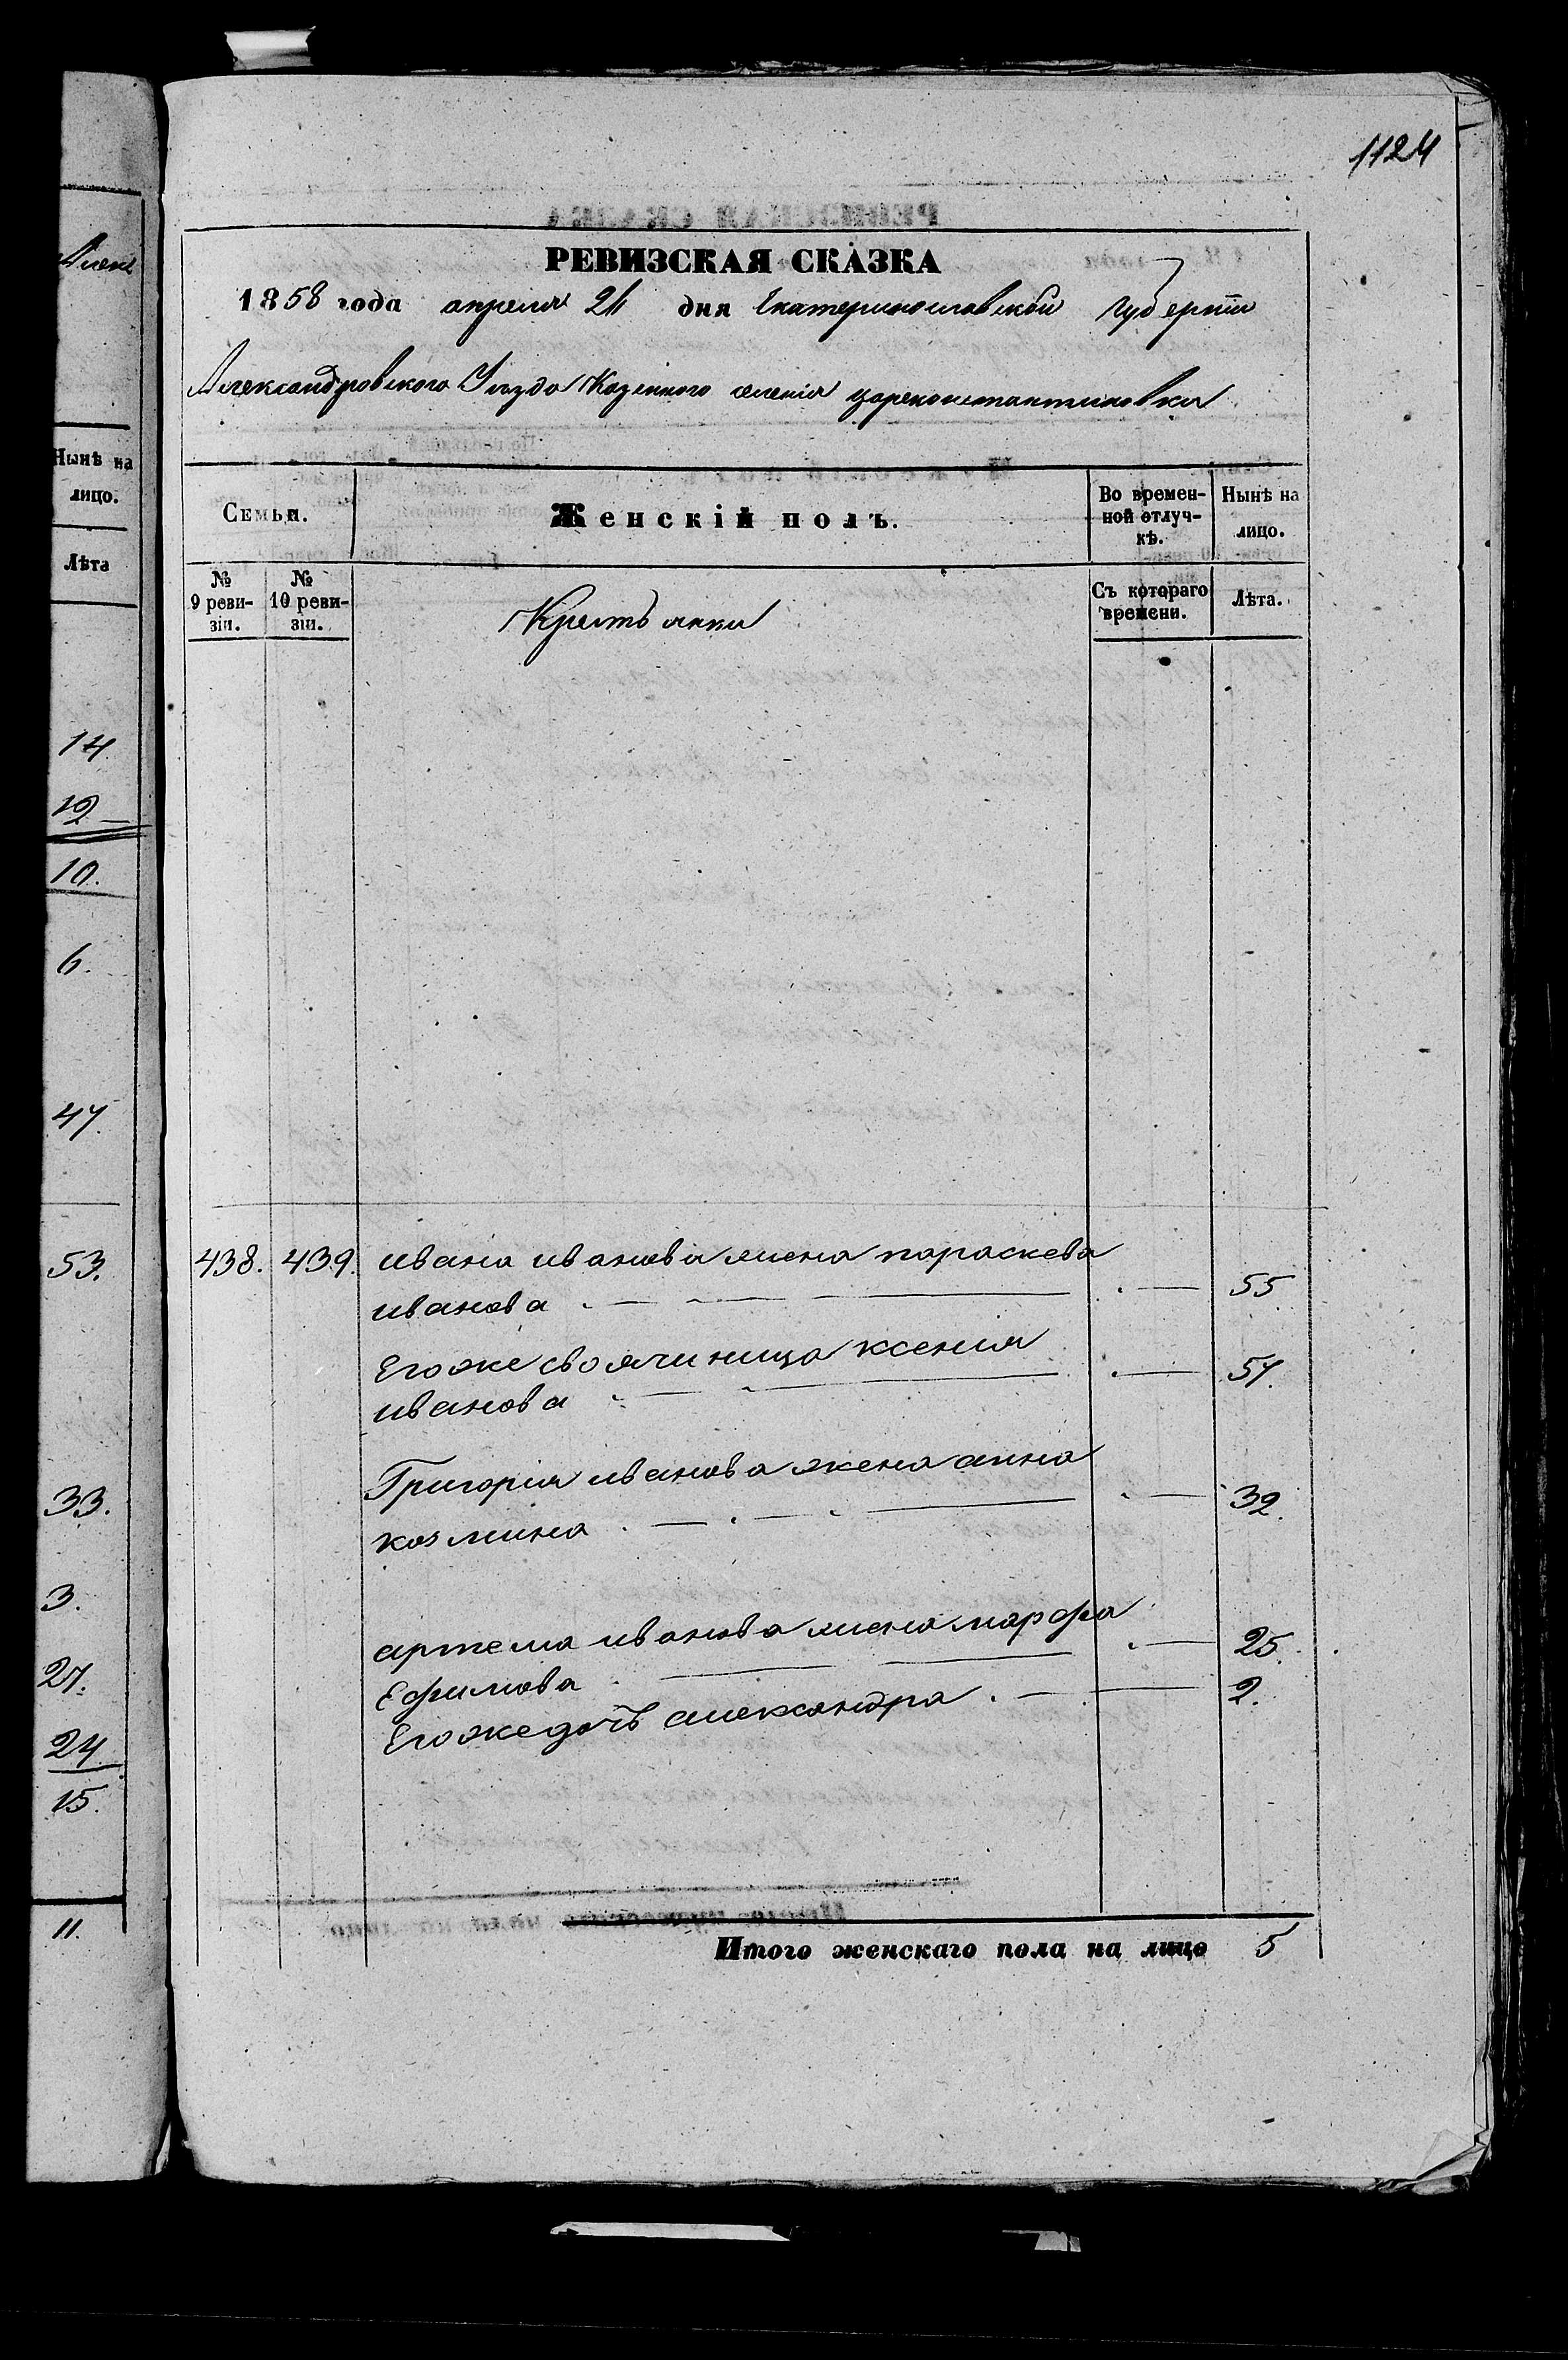 Алекс
Нынѣ на
лицо.
Лѣта
14.
12
10.
6.
47.
53.
33.
3.
27.
24
15.
11.
1124
РЕВИЗСКАЯ СКАЗКА
1858 года апреля дня Екатеринославской Губерніи
Александровского Уѣзда Казенного селенія цареконстантиновки
Семьи. Женскій полъ. Во времен-ной отлуч-кѣ. Нынѣ на лицо.
№ 9 реви-зіи. № 10 реви-зіи. Крестьянки Съ котораго времени. Лѣта.
438. 439. ивана иванова жена параскева
иванова 55
Егоже своячиница ксения
иванова 57.
Григория иванова жена анна
козмина 32.
артема иванова жена марфа
Ефимова 25.
Егоже дочь александра 2.
Итого женскаго пола на лицо 5